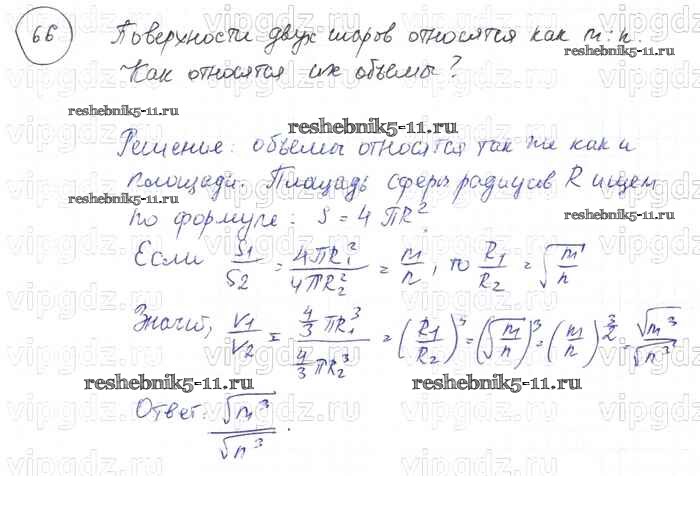 66 Поверхности двух шаров относятся как m:n.
Как относятся их объемы?
reshebnik5-11.ru reshebnik5-11.ru
reshebnik5-11.ru
Решение: объемы относятся так же как и
площади. Площадь сферы радиусов R ищем
reshebnik5-11.ru reshebnik5-11.ru
по формуле: S = 4πR²
Если S₁/S₂ = 4πR₁²/4πR₂² = m/n, то R₁/R₂ = √(m/n)
Значит, V₁/V₂ = (4/3 πR₁³)/(4/3 πR₂³) = (R₁/R₂)³ = (√(m/n))³ = (m/n)^(3/2) = √m³/√n³
reshebnik5-11.ru reshebnik5-11.ru
Ответ: √m³/√n³.